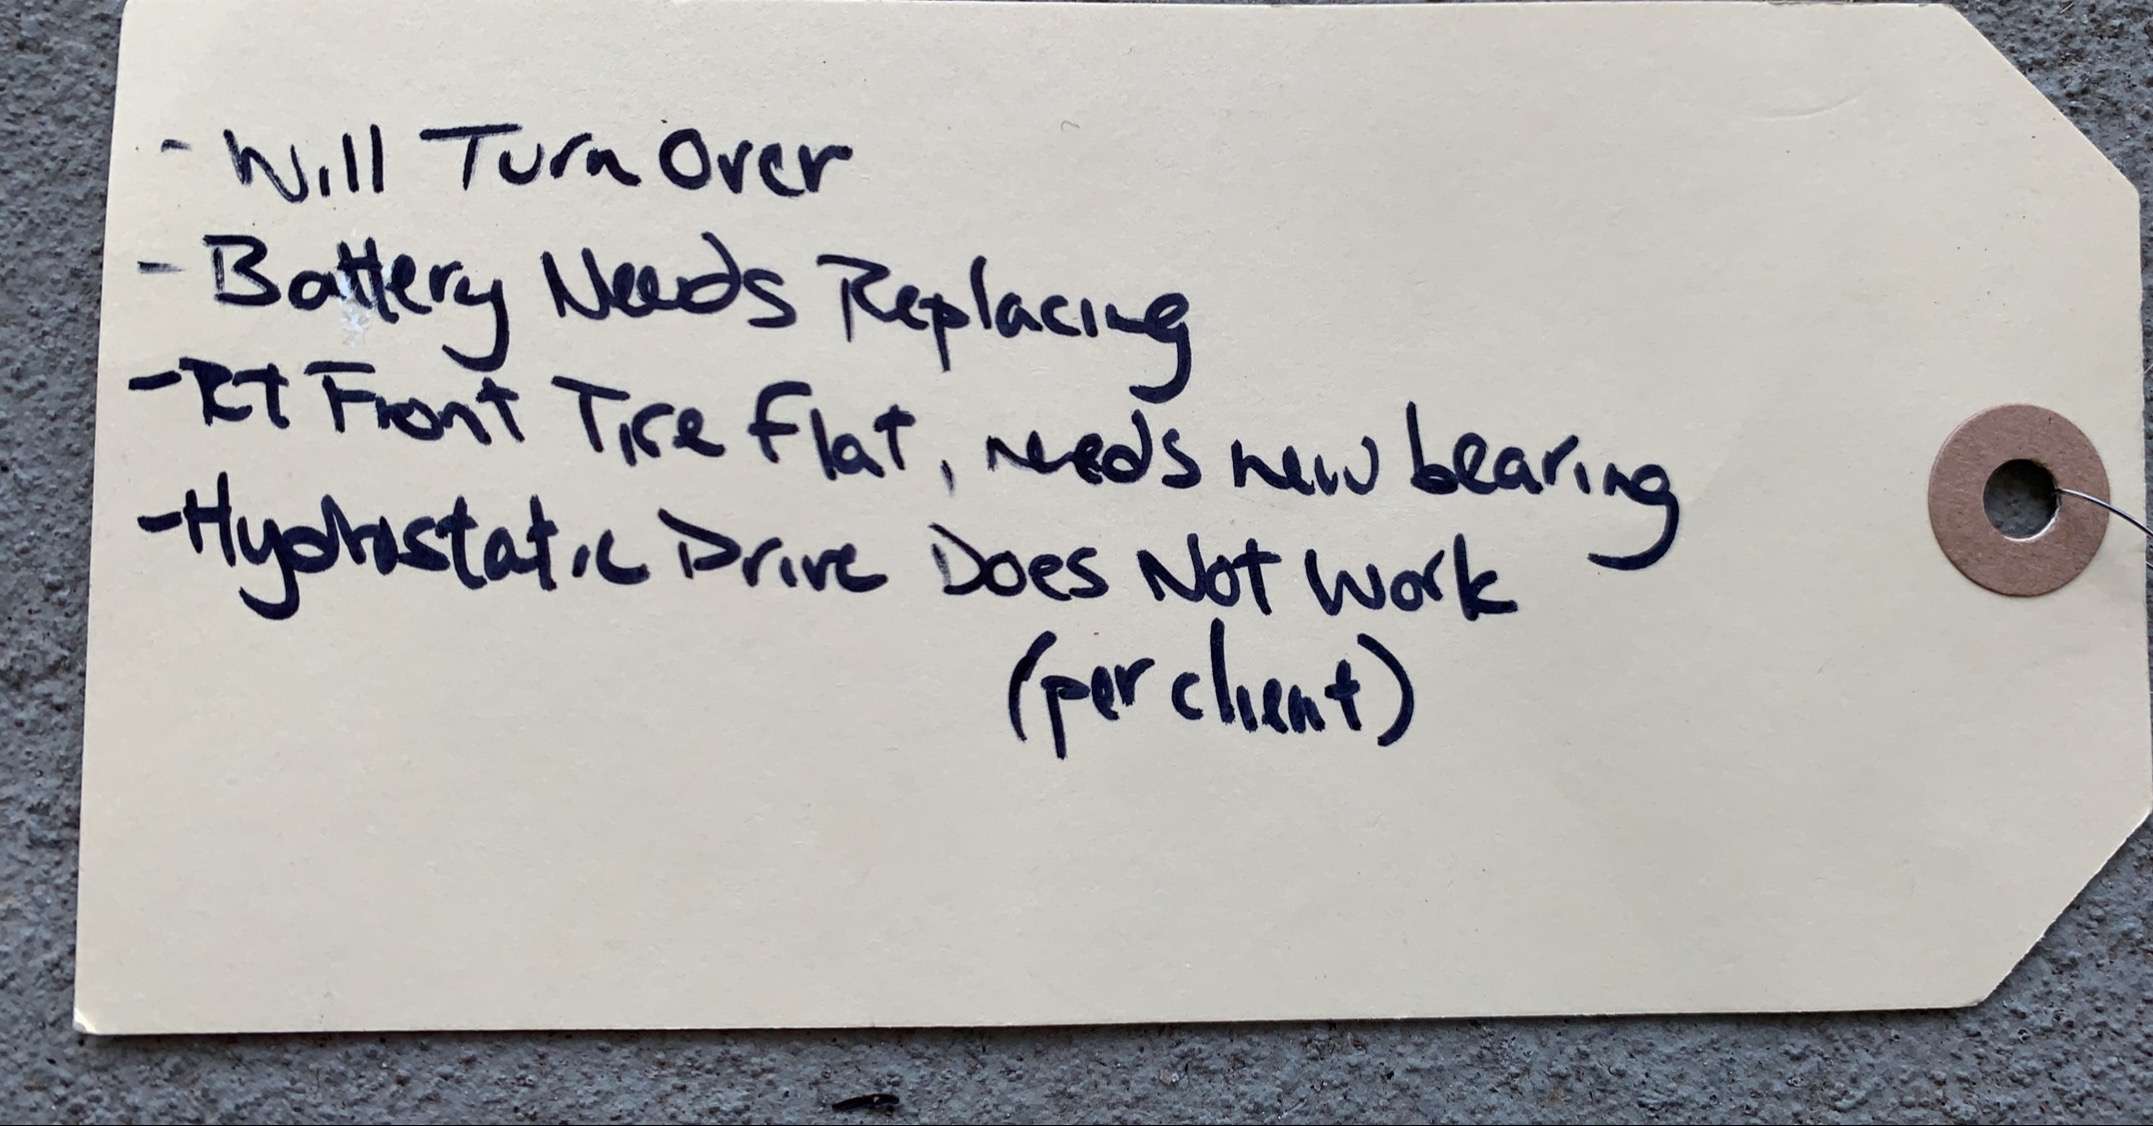 - Will Turn Over
- Battery Needs Replacing
- RT Front Tire flat, needs new bearing
- Hydrostatic Drive Does Not Work
(per client)